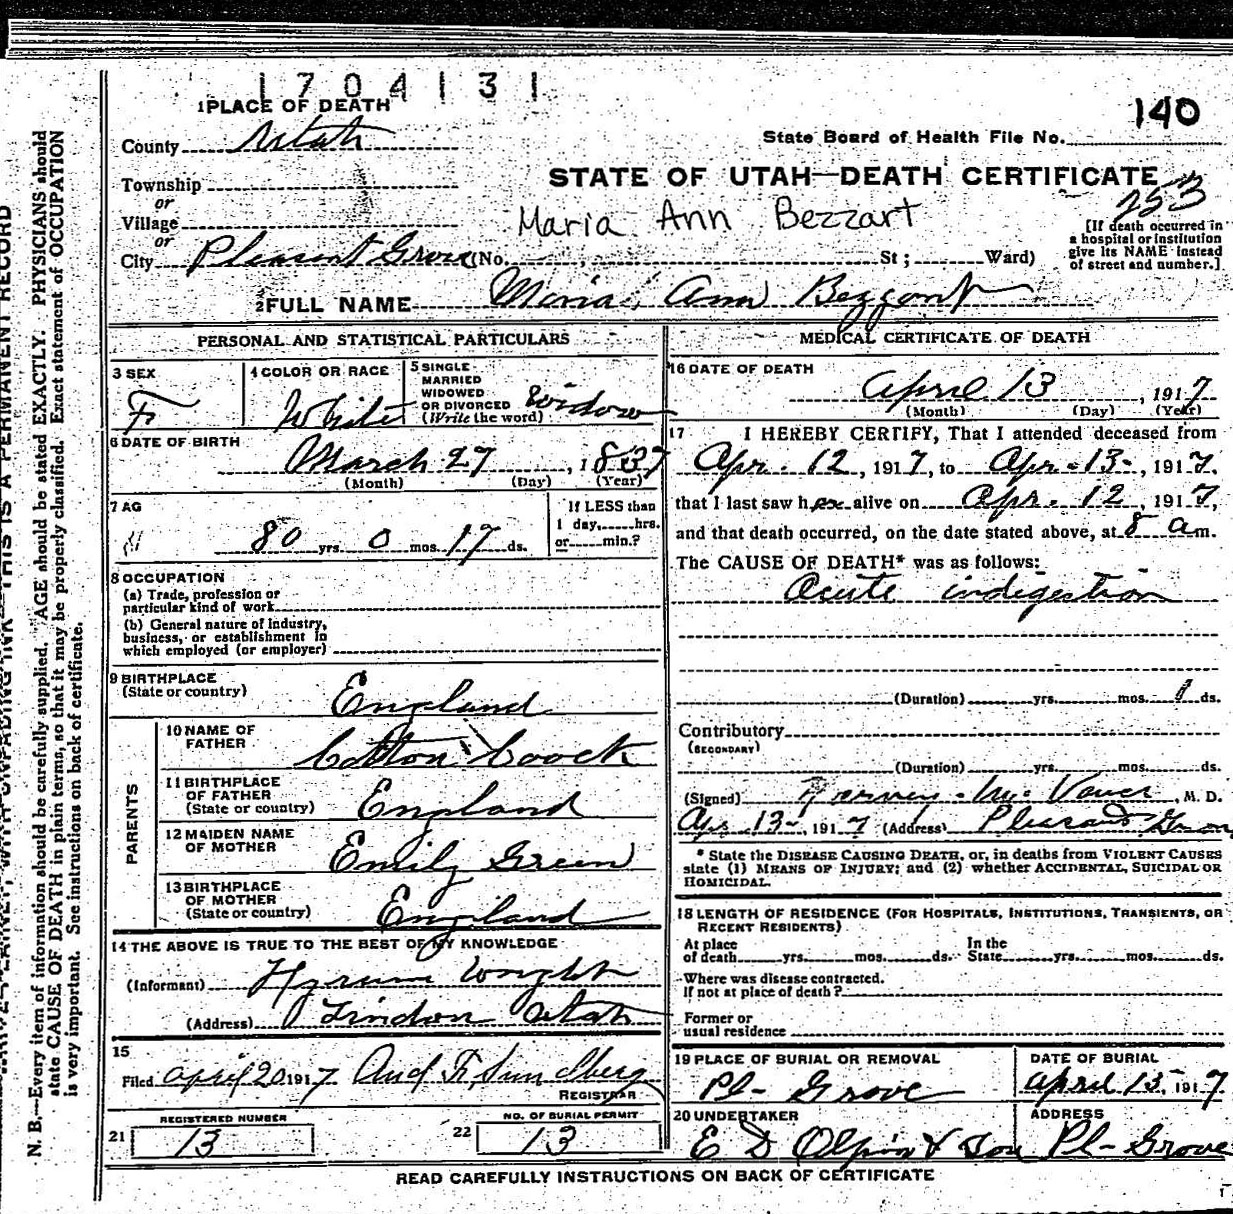 1704131
1 PLACE OF DEATH
140
County Utah
State Board of Health File No.
Township
STATE OF UTAH—DEATH CERTIFICATE
or
253
Village
Maria Ann Bezzart
or
[If death occurred in a hospital or institution give its NAME instead of street and number.]
City Pleasant Grove (No. , St; Ward)
2 FULL NAME Maria Ann Bezzant
PERSONAL AND STATISTICAL PARTICULARS
3 SEX F
4 COLOR OR RACE White
5 SINGLE MARRIED WIDOWED OR DIVORCED (Write the word) Widow
6 DATE OF BIRTH
March 27, 1837
(Month) (Day) (Year)
7 AG
80 yrs. 0 mos. 17 ds.
If LESS than
1 day, hrs.
or min.?
8 OCCUPATION
(a) Trade, profession or
particular kind of work
(b) General nature of industry,
business, or establishment in
which employed (or employer)
9 BIRTHPLACE
(State or country) England
PARENTS
10 NAME OF
FATHER Cotton Coock
11 BIRTHPLACE
OF FATHER
(State or country) England
12 MAIDEN NAME
OF MOTHER Emily Green
13 BIRTHPLACE
OF MOTHER
(State or country) England
14 THE ABOVE IS TRUE TO THE BEST OF MY KNOWLEDGE
(Informant) Hyrum Wright
(Address) Lindon Utah
15
Filed April 20 1917 Aud F. Sundberg
REGISTRAR
REGISTERED NUMBER
21 13
NO. OF BURIAL PERMIT
22 13
MEDICAL CERTIFICATE OF DEATH
16 DATE OF DEATH
April 13, 1917
(Month) (Day) (Year)
17 I HEREBY CERTIFY, That I attended deceased from
Apr. 12, 1917, to Apr. 13, 1917,
that I last saw her alive on Apr. 12, 1917,
and that death occurred, on the date stated above, at 8 am.
The CAUSE OF DEATH* was as follows:
Acute indigestion
(Duration) yrs. mos. 1 ds.
Contributory
(SECONDARY)
(Duration) yrs. mos. ds.
(Signed) M. D.
Apr 13, 1917 (Address) Pleasant Grove
* State the DISEASE CAUSING DEATH, or, in deaths from VIOLENT CAUSES
state (1) MEANS OF INJURY; and (2) whether ACCIDENTAL, SUICIDAL OR
HOMICIDAL.
18 LENGTH OF RESIDENCE (FOR HOSPITALS, INSTITUTIONS, TRANSIENTS, OR
RECENT RESIDENTS)
At place In the
of death yrs. mos. ds. State yrs. mos. ds.
Where was disease contracted.
If not at place of death?
Former or
usual residence
19 PLACE OF BURIAL OR REMOVAL
Pl- Grove
DATE OF BURIAL
April 15, 1917
20 UNDERTAKER
E D Olpin & Son
ADDRESS
Pl- Grove
READ CAREFULLY INSTRUCTIONS ON BACK OF CERTIFICATE
THIS IS A PERMANENT RECORD
N. B.—Every item of information should be carefully supplied. AGE should be stated EXACTLY. PHYSICIANS should
state CAUSE OF DEATH in plain terms, so that it may be properly classified. Exact statement of OCCUPATION
is very important. See instructions on back of certificate.